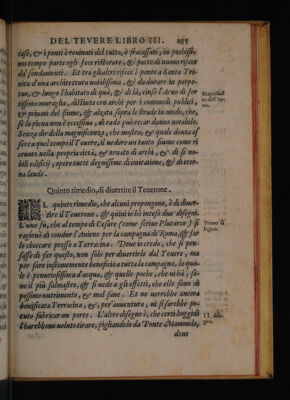 DEL TEVERE LIBRO III. 285
case, & è ponti è rouinati del tutto, è fracassati, in pochissi-
mo tempo parte egli fece ristorare, & parte di nuouo rifece
da' fondamenti. Et tra gli altri rifece l ponte a Santa Tri-
nità d'una architettura nobilissima, & da durare in perpe-
tuo, & lungo l'habitato di quà, & di là, cinse l'Arno di for
tissime muraglie, distinta con archi per i commodi publici,
& priuati del fiume, & alzata sopra le strade in modo, che,
se la piena nuouo è eccessiua, di rado può recar danno notabile.
Senza dir della magnificenza, che mostra, & quale douta es
sere a quel tempo il Teuere, il vedere un tanto fiume come re
entrato nella propria città, & ornato di archi, & di si no
bili edificij, opere tutte degnissime di imitatione, & di eter-
na laude.
Magnificen
za dell'Ar-
no.
Quinto rimedio, di diuertire il Teuerone.
IL quinto rimedio, che alcuni propongono, è di diuer-
tire il Teuerone. & qui ui n'hò inteso due disegni.
L'uno fù, che al tempo di Cesare (come scriue Plutarco) si
ragionò di condur l'Aniene per la campagna di Roma, & far
lo sboccare presso a Terracina. Doue io credo, che si pen-
sasse di far questo, non solo per diuertirlo dal Teuere, ma
per fare insiememente beneficio a tutta la campagna, la qua-
le è penuriosissima d'acqua, & quelle poche, che ui hà, so-
no il più salmastre, & si uede a gli effetti, che elle sono di
pessimo nutrimento, & mal sane. Et ne uerrebbe ancora
bonificata Terracina, & per auuentura, ui si sarebbe po-
tuto fabricar un porto. L'altro disegno è, che certi hoggidì
l'harebbono uoluto tirare, pigliandolo da Ponte Mammolo,
Primo di
segno.
II. dise-
gno.
done